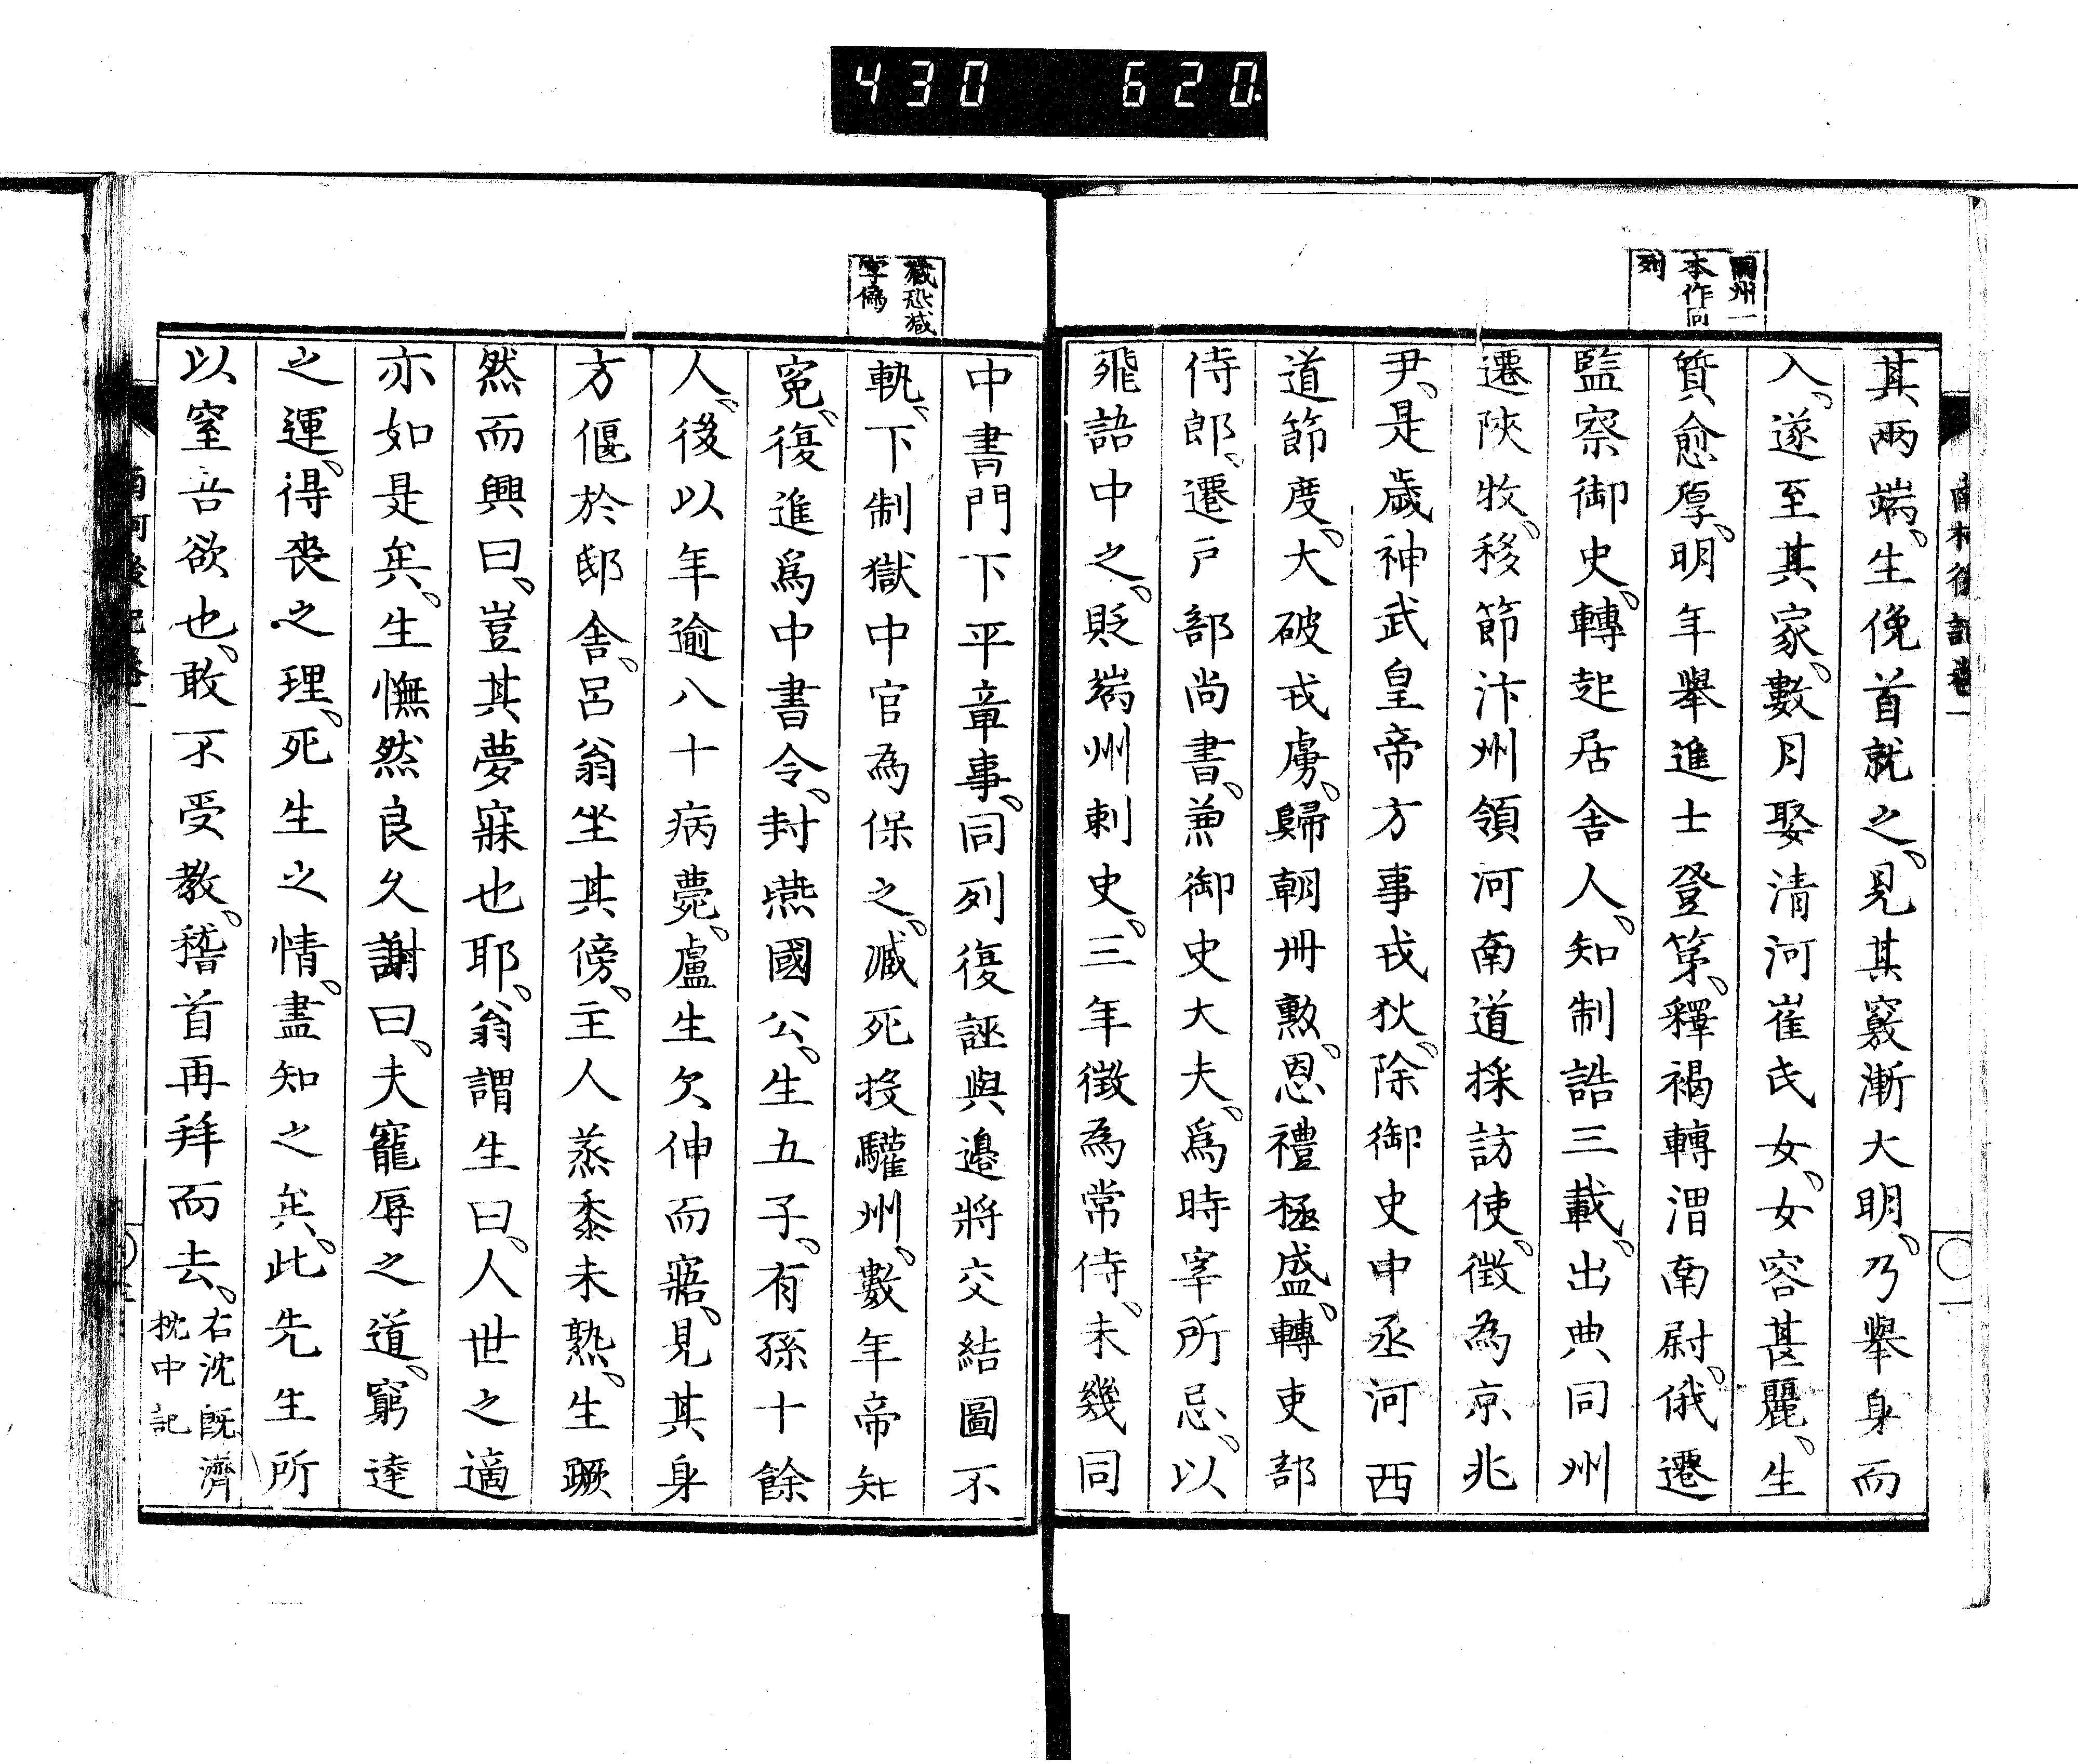 430 620
同州一
本作同
列
其兩端、生俛首就之、見其竅漸大明、乃舉身而
入、遂至其家、數月娶清河崔氏女、女容甚麗、生
質愈厚、明年舉進士登第、釋褐轉渭南尉、俄遷
監察御史、轉起居舍人、知制誥三載、出典同州
遷陝牧、移節汴州領河南道採訪使、徵為京兆
尹、是歲神武皇帝方事戎狄、除御史中丞河西
道節度、大破戎虜、歸朝冊勲、恩禮極盛、轉吏部
侍郎、遷戶部尚書、兼御史大夫、爲時宰所忌、以
飛語中之、貶端州刺史、三年徵為常侍、未幾同
字偽
中書門下平章事、同列復誣與邉將交結圖不
軌、下制獄中官為保之、减死投驩州、數年帝知
冤、復進爲中書令、封燕國公、生五子、有孫十餘
人、後以年逾八十病薨、盧生欠伸而寤、見其身
方偃於邸舍、呂翁坐其傍、主人蒸黍未熟、生蹶
然而興曰、豈其夢寐也耶、翁謂生曰、人世之適
亦如是矣、生憮然良久謝曰、夫寵辱之道、窮達
之運、得喪之理、死生之情、盡知之矣、此先生所
以窒吾欲也、敢不受教、稽首再拜而去、右沈既濟
枕中記